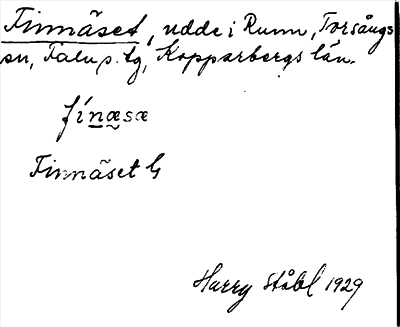 Finnäset, udde i Runn, Torsångs
sn, Falu s. tg, Kopparbergs län.
fínæsæ
Finnäset G
Harry Ståhl 1929